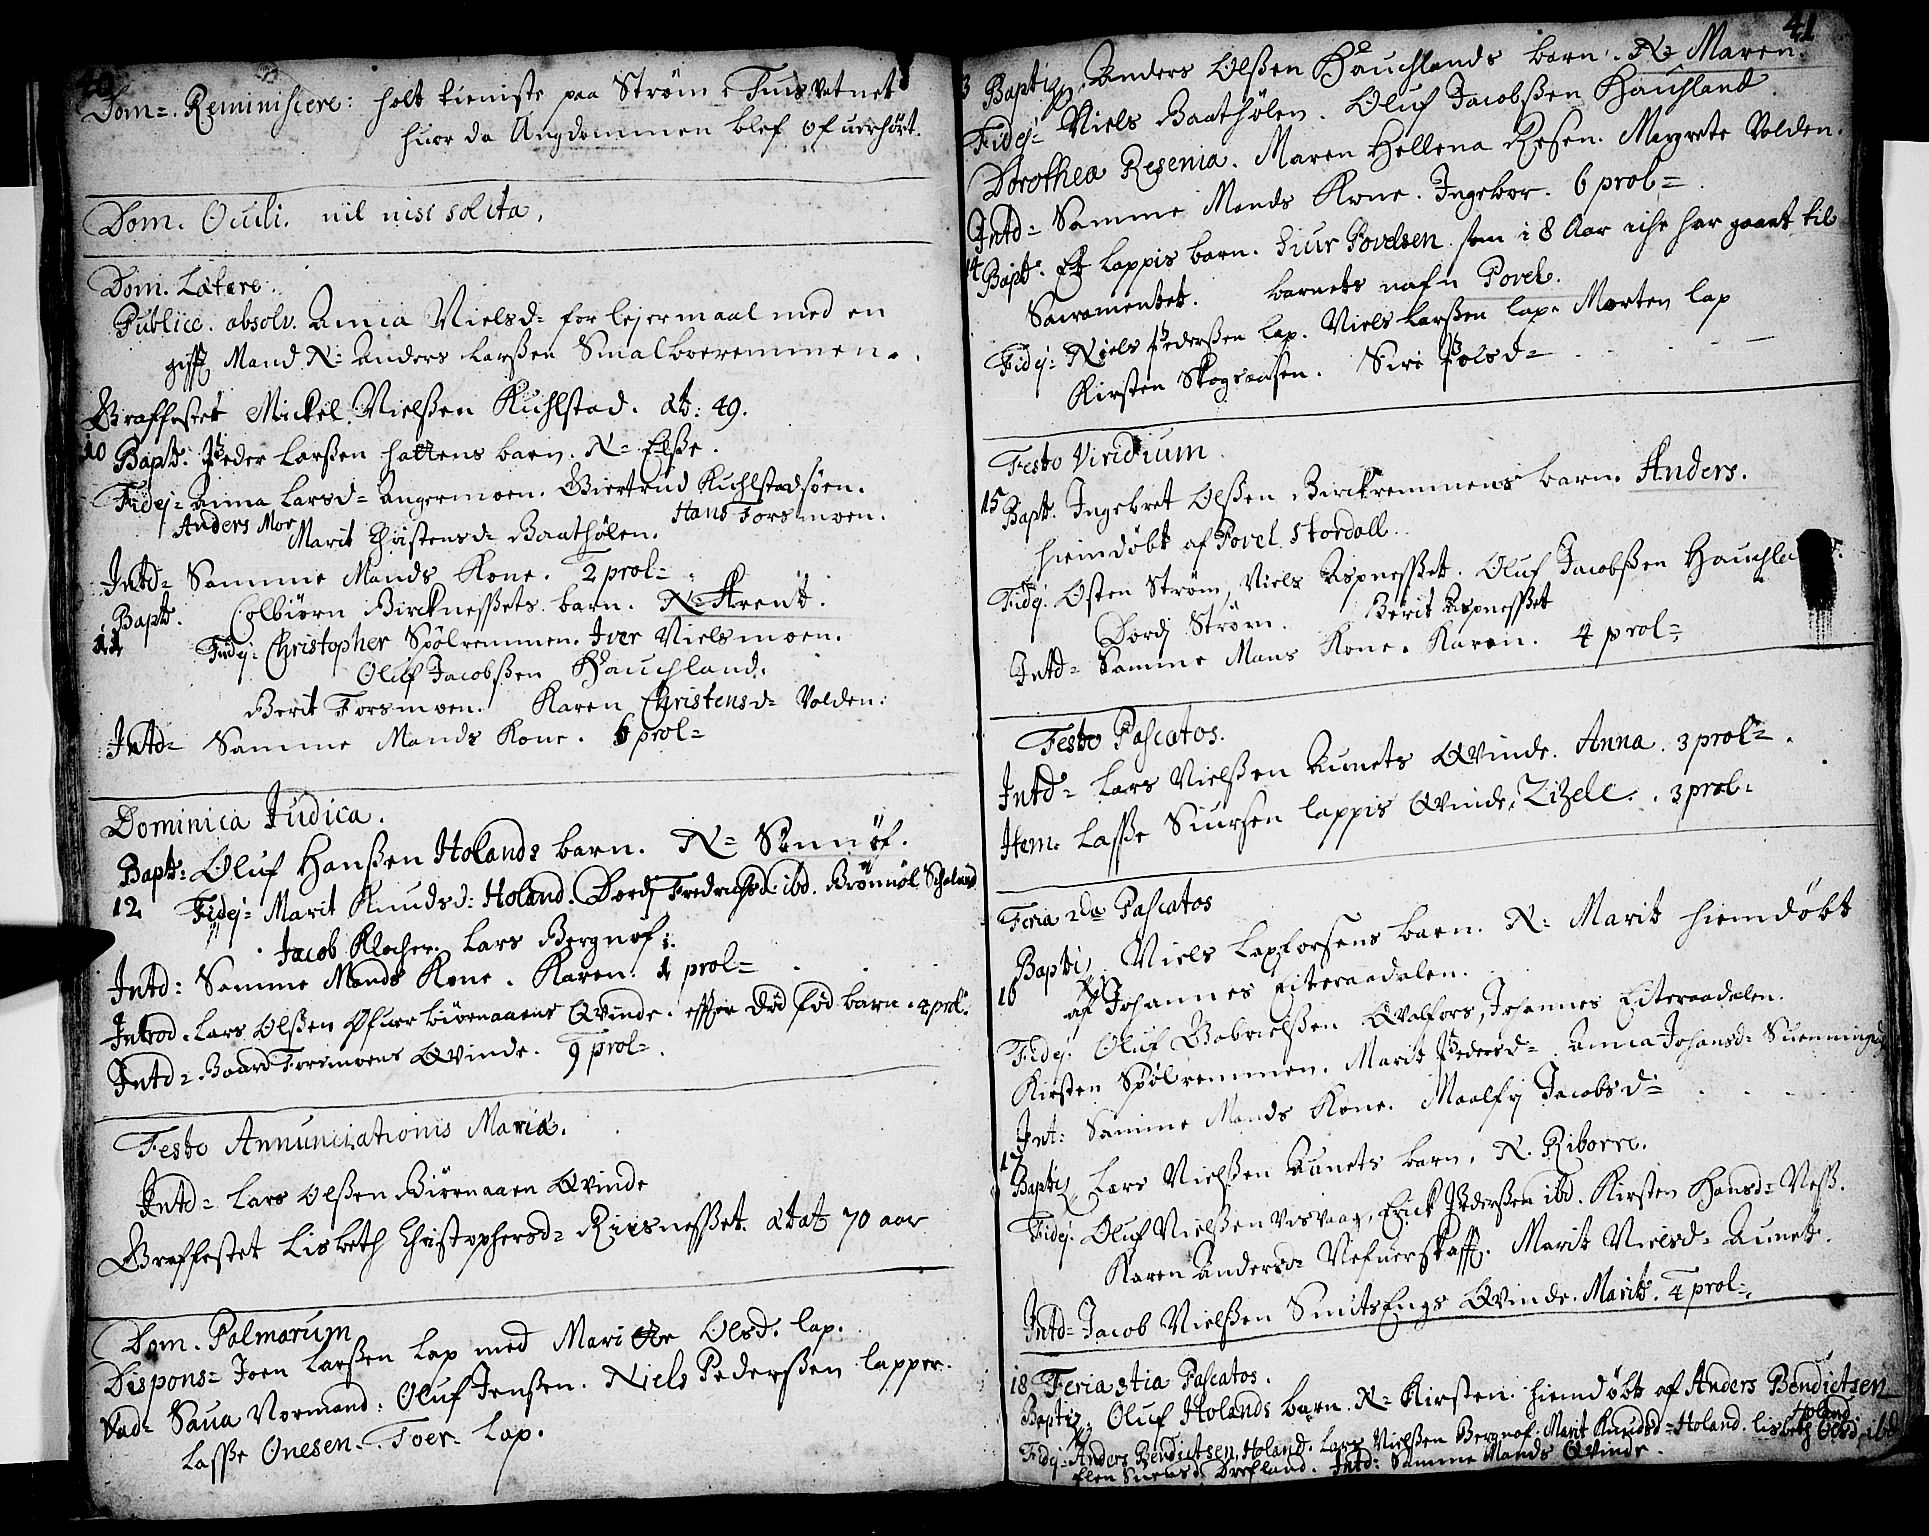 40
Dom=. Reminiscere: holt tieniste paa Strøm i Tuisvatnet
huor da Ungdommen blef ofuerhört.
Dom. Oculi. nil nisi solita.
Dom. Lætare.
Publice. absolv. Anna Nielsd= for lejermaal med en
gifft Mand N= Anders Larßen Smalboeremmen.
Graffestet Mickel Nielßen Kuhlstad. æt: 49.
10 Bapt. Peder Larßen hattens barn. N= Elße.
Fidej= Anna Larsd= Angermoen. Giertrud Kuhlstadsöen.
Anders Moe Marit Christensd= Baathölen. Hans Forsmoen.
Intd= Samme Mands Kone. 2 prol=
Bapt. Colbiörn Bircknesßets barn. N= Arent.
11 Fidej: Christopher Spölremmen. Iver Nielsmoen.
Oluf Jacobßen Hauchland.
Berit Forsmoen. Karen Christensd= Volden.
Intd= Samme Mands Kone. 6 prol=
Dominica Judica.
Bapt: Oluf Hanßen Holands barn. N= Sønnöf.
12 Fidej= Marit Knudsd: Holand. Dordj Fredrichsd: ibd. Brönnöl Schaland
Jacob Klocher. Lars Bergnof:
Intd: Samme Mands Kone. Karen. 1 prol=
Introd. Lars Olßen Ofuer biörnaaens Qvinde. effter död föd barn. 4 prol:
Intd= Baard Forsmoens Qvinde. 9 prol=
Festo Annunciationis Mariæ.
Intd= Lars Olßen Biörnaaen Qvinde
Graffestet Lisbeth Christophersd= Riisnesßet. ætat 70 aar
Dom. Palmarum
Dispons= Joen Larßen Lap med Mari Olsd. lap.
Vad= Saua Normand: Oluf Jenßen. Niels Pederßen lapper.
Lasße Onesen. Toer. Lap.
41
3 Baptiz. Anders Olßen Hauchlands barn. N= Maren.
Fidej= Niels Baathölen. Oluf Jacobßen Hauchland.
Dorothea Resenia. Maren Hellena Resen. Margrete Volden.
Intd= Samme Mands Kone. Ingebor. 6 prol=
14 Bapt. Et lappis barn. Siur Povelsen som i 8 Aar iche har gaaet til
Sacramentet. barnets nafn Povel.
Fidej: Niels Pederßen lap. Niels Larßen lap. Morten lap
Kirsten Skogsaasen. Siri Polsd=
Festo Viridium.
15 Bapt. Ingebret Olßen Birckremmens barn. Anders.
hiemdöbt af Povel Stordall.
Fidej. Osten Ström, Niels Aspnesßet. Oluf Jacobßen Hauchland.
Dordj Ström. Berit Aspnesßet
Intd= Samme Mans Kone. Karen. 4 prol=
Festo Pascatos.
Intd= Lars Nielßen Aunets Qvinde. Anna. 3 prol=
Item. Lasße Siursen lappis Qvinde. Zizele. 3 prol:
Feria 2da Pascatos
Baptiz. Niels Lapforsens barn. N: Marit hiemdöbt
16 af Johannes Eiteraadalen.
Fidej. Oluf Gabrielßen Qvalfors, Johannes Eiteraadalen.
Kirsten Spölremmen. Marit Pedersd= Anna Johansd: Suenningd
Int: Samme Mands Kone. Maalfrj Jacobsd=
17 Baptiz Lars Nielßen Aunets barn. N. Riborre.
Fidej. Oluf Nielßen Visvaag, Erick Pederßen ibd. Kirsten Hansd= Neß.
Karen Andersd= Nefuerskaff. Marit Nielsd= Aunet.
Intd= Jacob Nielßen SmitsEngs Qvinde. Marit. 4 prol=
18 Feria 3tia Pascatos.
Baptiz. Oluf Holands barn. N= Kirsten hiemdöbt af Anders Bendictsen
Holand.
Fidej= Anders Bendictsen. Holand. Lars Nielßen Bergnof. Marit Knudsd= Holand. Lisbeth Olsd. ibd
Elen Suensd. Drefland. Intd: Samme Mands Qvinde.